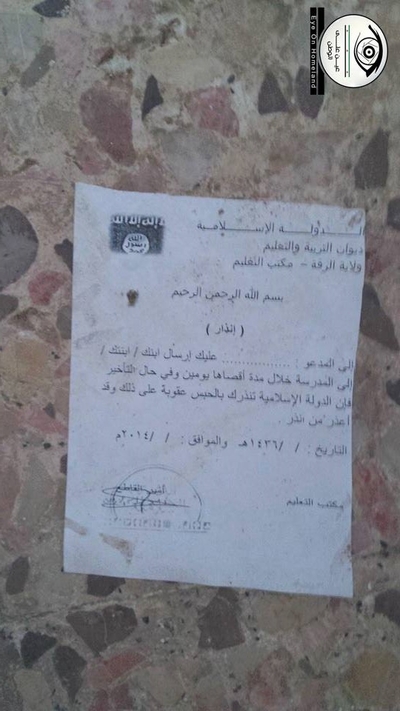 Eye On Homeland
عين على الوطن
الدولة الإسلامية
ديوان التربية والتعليم
ولاية الرقة - مكتب التعليم
لا إله إلا الله
الله
رسول
محمد
بسم الله الرحمن الرحيم
( إنذار )
إلى المدعو : ................ عليك إرسال ابنك / ابنتك /
إلى المدرسة خلال مدة أقصاها يومين وفي حال التأخير
فإن الدولة الإسلامية تنذرك بالحبس عقوبة على ذلك وقد
أعذر من انذر .
التاريخ : / /١٤٣٦هـ والموافق : / /٢٠١٤م
مكتب التعليم
أمير القاطع